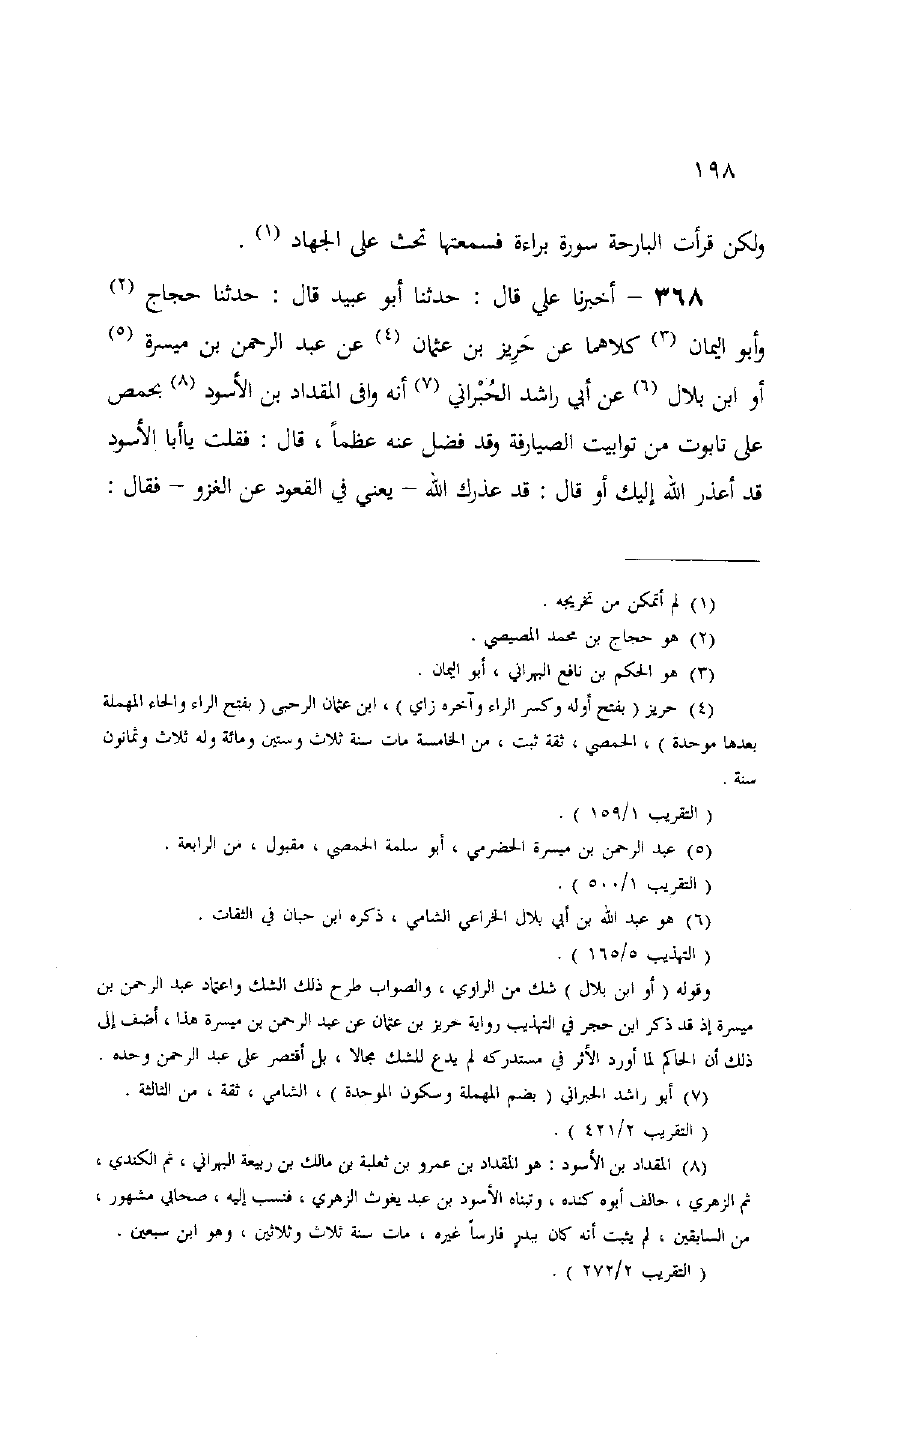 ١٩٨
ولكن قرأت البارحة سورة براءة فسمعتها تحث على الجهاد (١) .
٣٦٨ – أخبرنا علي قال : حدثنا أبو عبيد قال : حدثنا حجاج (٢)
وأبو اليمان (٣) كلاهما عن حَرِيز بن عثمان (٤) عن عبد الرحمن بن ميسرة (٥)
أو ابن بلال (٦) عن أبي راشد الحُبْراني (٧) أنه وافى المقداد بن الأسود (٨) بحمص
على تابوت من توابيت الصيارفة وقد فضل عنه عظماً ، قال : فقلت ياأبا الأسود
قد أعذر الله إليك أو قال : قد عذرك الله – يعني في القعود عن الغزو – فقال :
(١) لم أتمكن من تخريجه .
(٢) هو حجاج بن محمد المصيصي .
(٣) هو الحكم بن نافع البهراني ، أبو اليمان .
(٤) حريز ( بفتح أوله وكسر الراء وآخره زاي ) ، ابن عثمان الرحبى ( بفتح الراء والحاء المهملة
بعدها موحدة ) ، الحمصي ، ثقة ثبت ، من الخامسة مات سنة ثلاث وستين ومائة وله ثلاث وثمانون
سنة .
( التقريب ١٥٩/١ ) .
(٥) عبد الرحمن بن ميسرة الحضرمي ، أبو سلمة الحمصي ، مقبول ، من الرابعة .
( التقريب ٥٠٠/١ ) .
(٦) هو عبد الله بن أبي بلال الخزاعي الشامي ، ذكره ابن حبان في الثقات .
( التهذيب ١٦٥/٥ ) .
وقوله ( أو ابن بلال ) شك من الراوي ، والصواب طرح ذلك الشك واعتماد عبد الرحمن بن
ميسرة إذ قد ذكر ابن حجر في التهذيب رواية حريز بن عثمان عن عبد الرحمن بن ميسرة هذا ، أضف إلى
ذلك أن الحاكم لما أورد الأثر في مستدركه لم يدع للشك مجالا ، بل أقتصر على عبد الرحمن وحده .
(٧) أبو راشد الحبراني ( بضم المهملة وسكون الموحدة ) ، الشامي ، ثقة ، من الثالثة .
( التقريب ٤٢١/٢ ) .
(٨) المقداد بن الأسود : هو المقداد بن عمرو بن ثعلبة بن مالك بن ربيعة البهراني ، ثم الكندي ،
ثم الزهري ، حالف أبوه كنده ، وتبناه الأسود بن عبد يغوث الزهري ، فنسب إليه ، صحابي مشهور ،
من السابقين ، لم يثبت أنه كان ببدرٍ فارساً غيره ، مات سنة ثلاث وثلاثين ، وهو ابن سبعين .
( التقريب ٢٧٢/٢ ) .